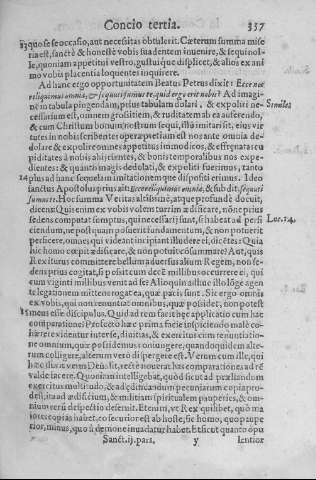 Concio tertia. 337
13 quo se se occasio, aut necessitas obtulerit. Cæterum summa mise
ria est, sanctè & honestè vobis suadentem inuenire, & sequi nol-
le, quoniam appetitui vestro, gustuíque displicet, & alios ex ani
mo vobis placentia loquentes inquirere.
Ad hanc ergo opportunitatem Beatus Petrus dixit: Ecce nos
reliquimus omnia, & sequuti sumus te, quid ergo erit nobis? Ad imagi-
nē in tabula pingendam, prius tabulam dolari, & expoliri ne- Similes
cessarium est, omnem grossitiem, & ruditatem ab ea auferendo,
& cum Christum bonum nostrum sequi, illū imitari sit, eius vir
tutes in nobis scribentes operæpretium est nos ante omnia de-
dolare & expolire omnes appetitus immodicos, & effrænatas cu
piditates à nobis abijcientes, & bonis temporalibus nos expe-
dientes: & quantò magis dedolati, & expoliti fuerimus, tanto
14 plus ad hanc sequelam imitationemque dispositi erimus. Ideo
sanctus Apostolus prius ait: Ecce reliquimus omnia, & subdit, sequuti
sumus te. Hoc summa Veritas altissimè, atque profundè docuit,
dicens: Quis enim ex vobis volens turrim ædificare, nōne prius
sedens computat sumptus, qui necessarij sunt, si habeat ad perfi Luc. 14.
ciendum, ne postquam posuerit fundamentum, & non potuerit
perficere, omnes qui vident incipiant illudere ei, dicētes: Quia
hic homo cœpit ædificare, & non potuit cōsummare? Aut, quis
Rex iturus committere bellum aduersus alium Regem, non se-
dens prius cogitat, si possit cum decē millibus occurrere ei, qui
cum viginti millibus venit ad se? Alioquin adhuc illo lōge agen
te legationem mittens rogat ea, quæ pacis sunt. Sic ergo omnis
ex vobis, qui non renuntiat omnibus, quæ possidet, non potest
15 meus esse discipulus. Quid ad rem facit hæc applicatio cum hac
comparatione? Profectò hæc prima facie inspiciendo malè co-
hærere videntur inter se, diuitias, & exercitus cum renuntiatio-
ne omnium, quæ possidemus coniungere, quandoquidem alte-
rum colligere, alterum verò dispergere est. Verum cum ille, qui
hæc dixit verus Deus sit, rectè nouerat has comparationes, ad rē
valde facere. Quoniam intelligebat, quòd sicut ad præliandum
exercitus multitudo, & ad ędificandum pecuniarum copia pro-
dest, ita ad ædificium, & militiam spiritualem pauperies, & om-
nium rerū despectio deseruit. Etenim, vt Rex quilibet, quò ma
iores copias habet, eo securior est ab hoste, sic homo, quo paupe
rior, minus, quo à dęmone inuadatur habet. Et sicut quanto opu
Sanct. ij. pars. y lentior